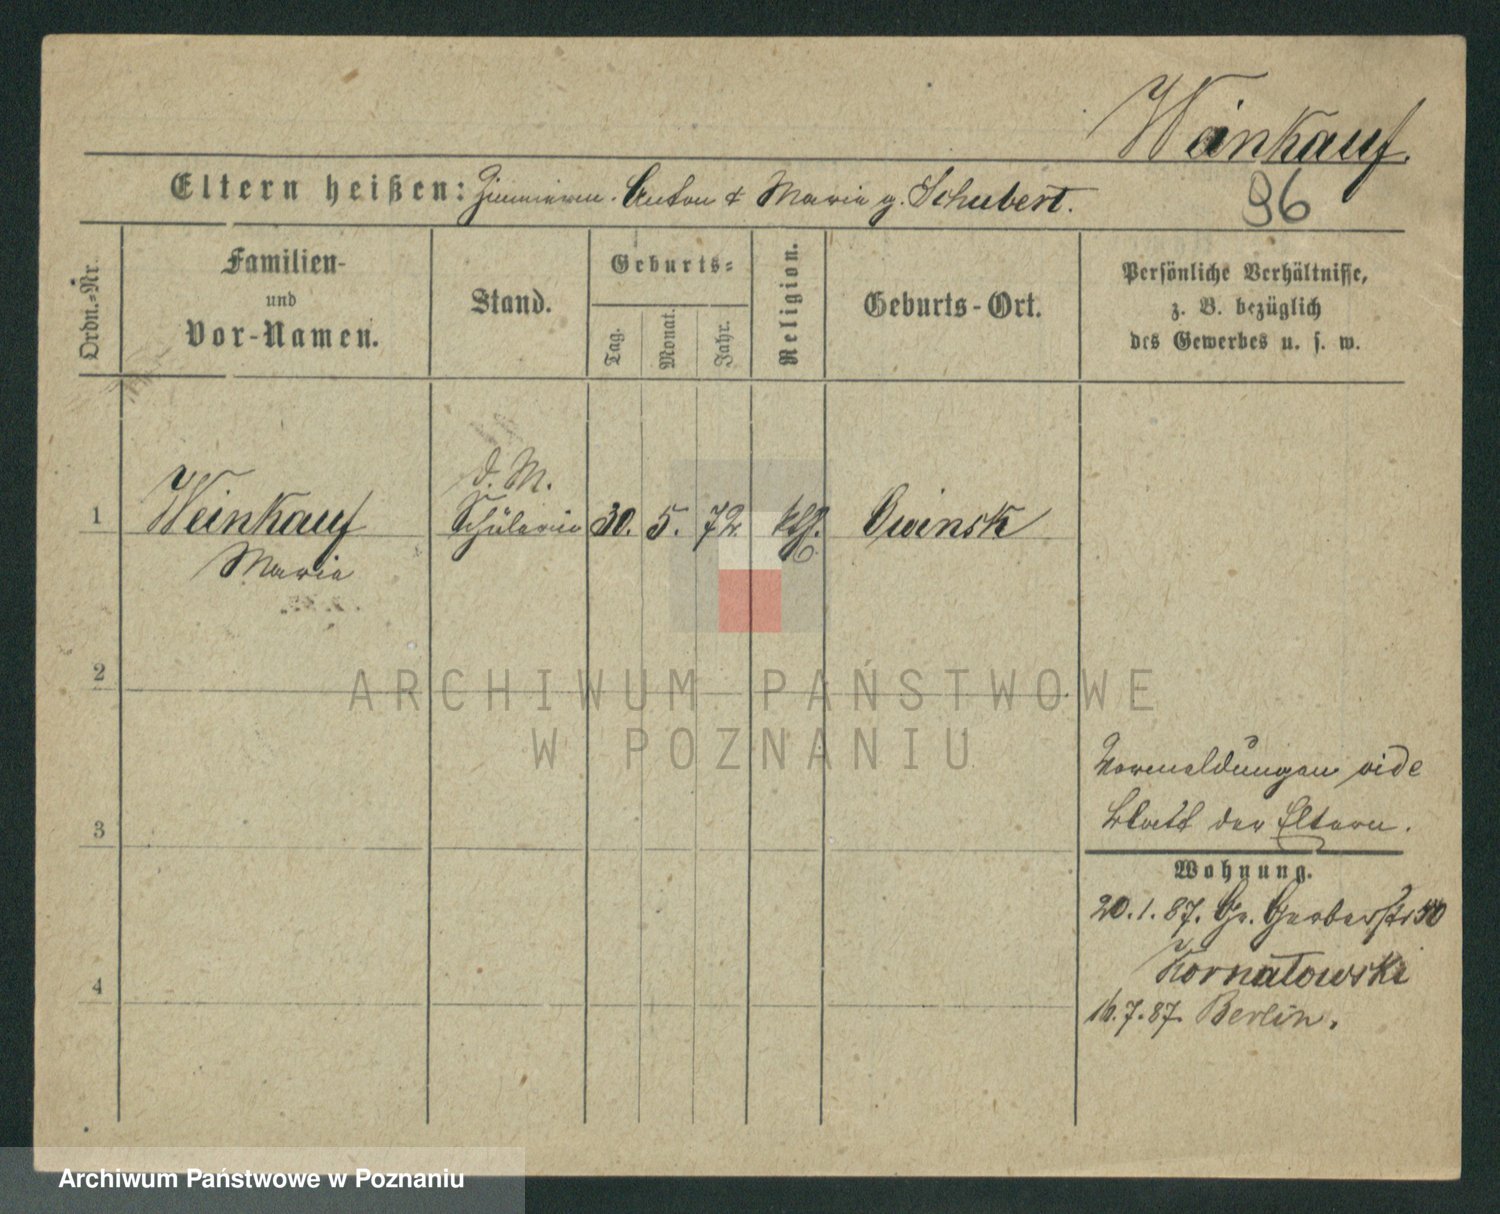 Weinkauf.
96
Eltern heißen: Zimmerm. Anton & Maria g. Schubert.
Ordn.-Nr.
Familien-
und
Vor-Namen.
Stand.
Geburts-
Tag.
Monat.
Jahr.
Religion.
Geburts-Ort.
Persönliche Verhältnisse,
z. B. bezüglich
des Gewerbes u. s. w.
d. M.
1 Weinkauf Schülerin 30. 5. 72 kth. Owinsk
Maria
2
ARCHIWUM PAŃSTWOWE
W POZNANIU
Vormeldungen vide
Blatt der Eltern.
3
Wohnung.
20.1.87. Gr. Gerberstr 50
Kornatowski
4
16.7.87. Berlin.
Archiwum Państwowe w Poznaniu